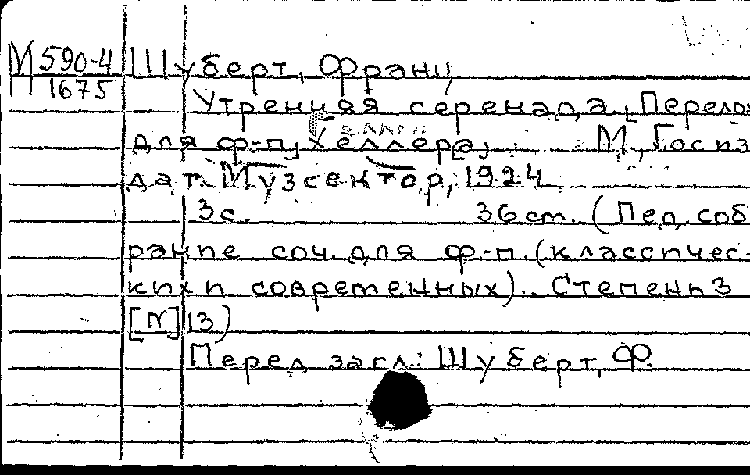 М 590-4 Шуберт, Франц
1675
Утренняя серенада, Перелож
для ф-п, Хеллера, М., Госиз
дат. Музсектор, 1924
3с. 36 cm. (Пед. соб
рание соч. для ф-п. (классичес-
ких и современных). Степень 3
[N] 13)
Перед загл: Шуберт, Ф.